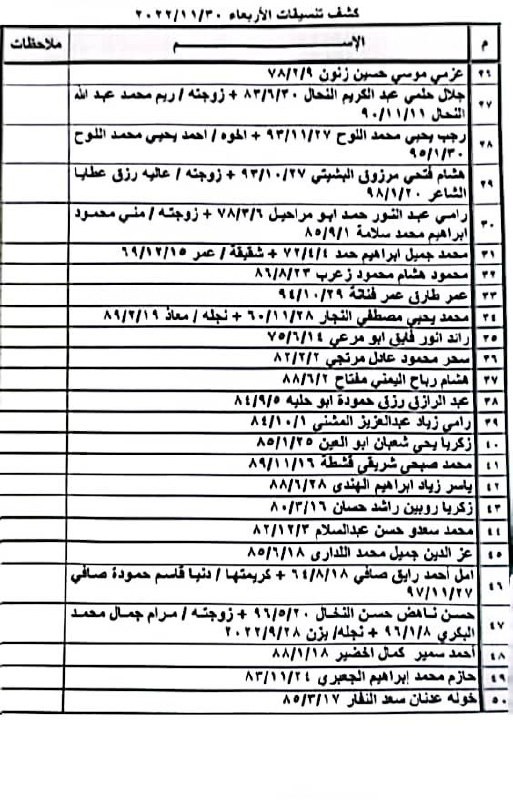 كشف تنسيقات الأربعاء ٢٠٢٢/١١/٣٠
م الإســـــــــــــم ملاحظات
٢٦ عزمي موسي حسين زنون ٧٨/٢/٩
٢٧ جلال حلمي عبد الكريم النحال ٨٣/٦/٣٠ + زوجته / ريم محمد عبد الله
النحال ٩٠/١١/١١
٢٨ رجب يحيي محمد اللوح ٩٣/١١/٢٧ + اخوه / احمد يحيي محمد اللوح
٩٥/١/٣٠
٢٩ هشام فتحي مرزوق البشيتي ٩٣/١٠/٢٧ + زوجته / عاليه رزق عطايا
الشاعر ٩٨/١/٢٠
٣٠ رامي عبد النور حمد ابو مراحيل ٧٨/٣/٦ + زوجته / مني محمود
ابراهيم محمد سلامة ٨٥/٩/١
٣١ محمد جميل ابراهيم حمد ٧٢/٤/٤ + شقيقة / عمر ٦٩/١٢/١٥
٣٢ محمود هشام محمود زعرب ٨٦/٨/٢٣
٣٣ عمر طارق عمر فنانة ٩٤/١٠/٢٩
٣٤ محمد يحيي مصطفي النجار ٦٠/١١/٢٨ + نجله / معاذ ٨٩/٢/١٩
٣٥ رائد انور فايق ابو مرعي ٧٥/٦/١٤
٣٦ سحر محمود عادل مرتجي ٨٢/٢/٢
٣٧ هشام رباح اليمني مفتاح ٨٨/٦/٢
٣٨ عبد الرازق رزق حمودة ابو حلبه ٨٤/٩/٥
٣٩ رامي زياد عبدالعزيز المشني ٨٤/١٠/١
٤٠ زكريا يحي شعبان ابو العين ٨٥/١/٢٥
٤١ محمد صبحي شريقي قشطة ٨٩/١١/١٦
٤٢ ياسر زياد ابراهيم الهندي ٨٨/٦/٢٨
٤٣ زكريا روبين راشد حسان ٨٠/٣/١٦
٤٤ محمد سعدو حسن عبدالسلام ٨٢/١٢/٣
٤٥ عز الدين جميل محمد اللداري ٨٥/٦/١٨
٤٦ امل احمد رايق صافي ٦٤/٨/١٨ + كريمتها / دنيا قاسم حمودة صافي
٩٧/١١/٢٧
٤٧ حسن ناهض حسن النخال ٩٦/٥/٢٠ + زوجته / مرام جمال محمد
البكري ٩٦/١/٨ + نجله/ يزن ٢٠٢٢/٩/٢٨
٤٨ أحمد سمير كمال الخضير ٨٨/١/١٨
٤٩ حازم محمد إبراهيم الجعبري ٨٣/١١/٢٤
٥٠ خوله عدنان سعد النفار ٨٥/٣/١٧